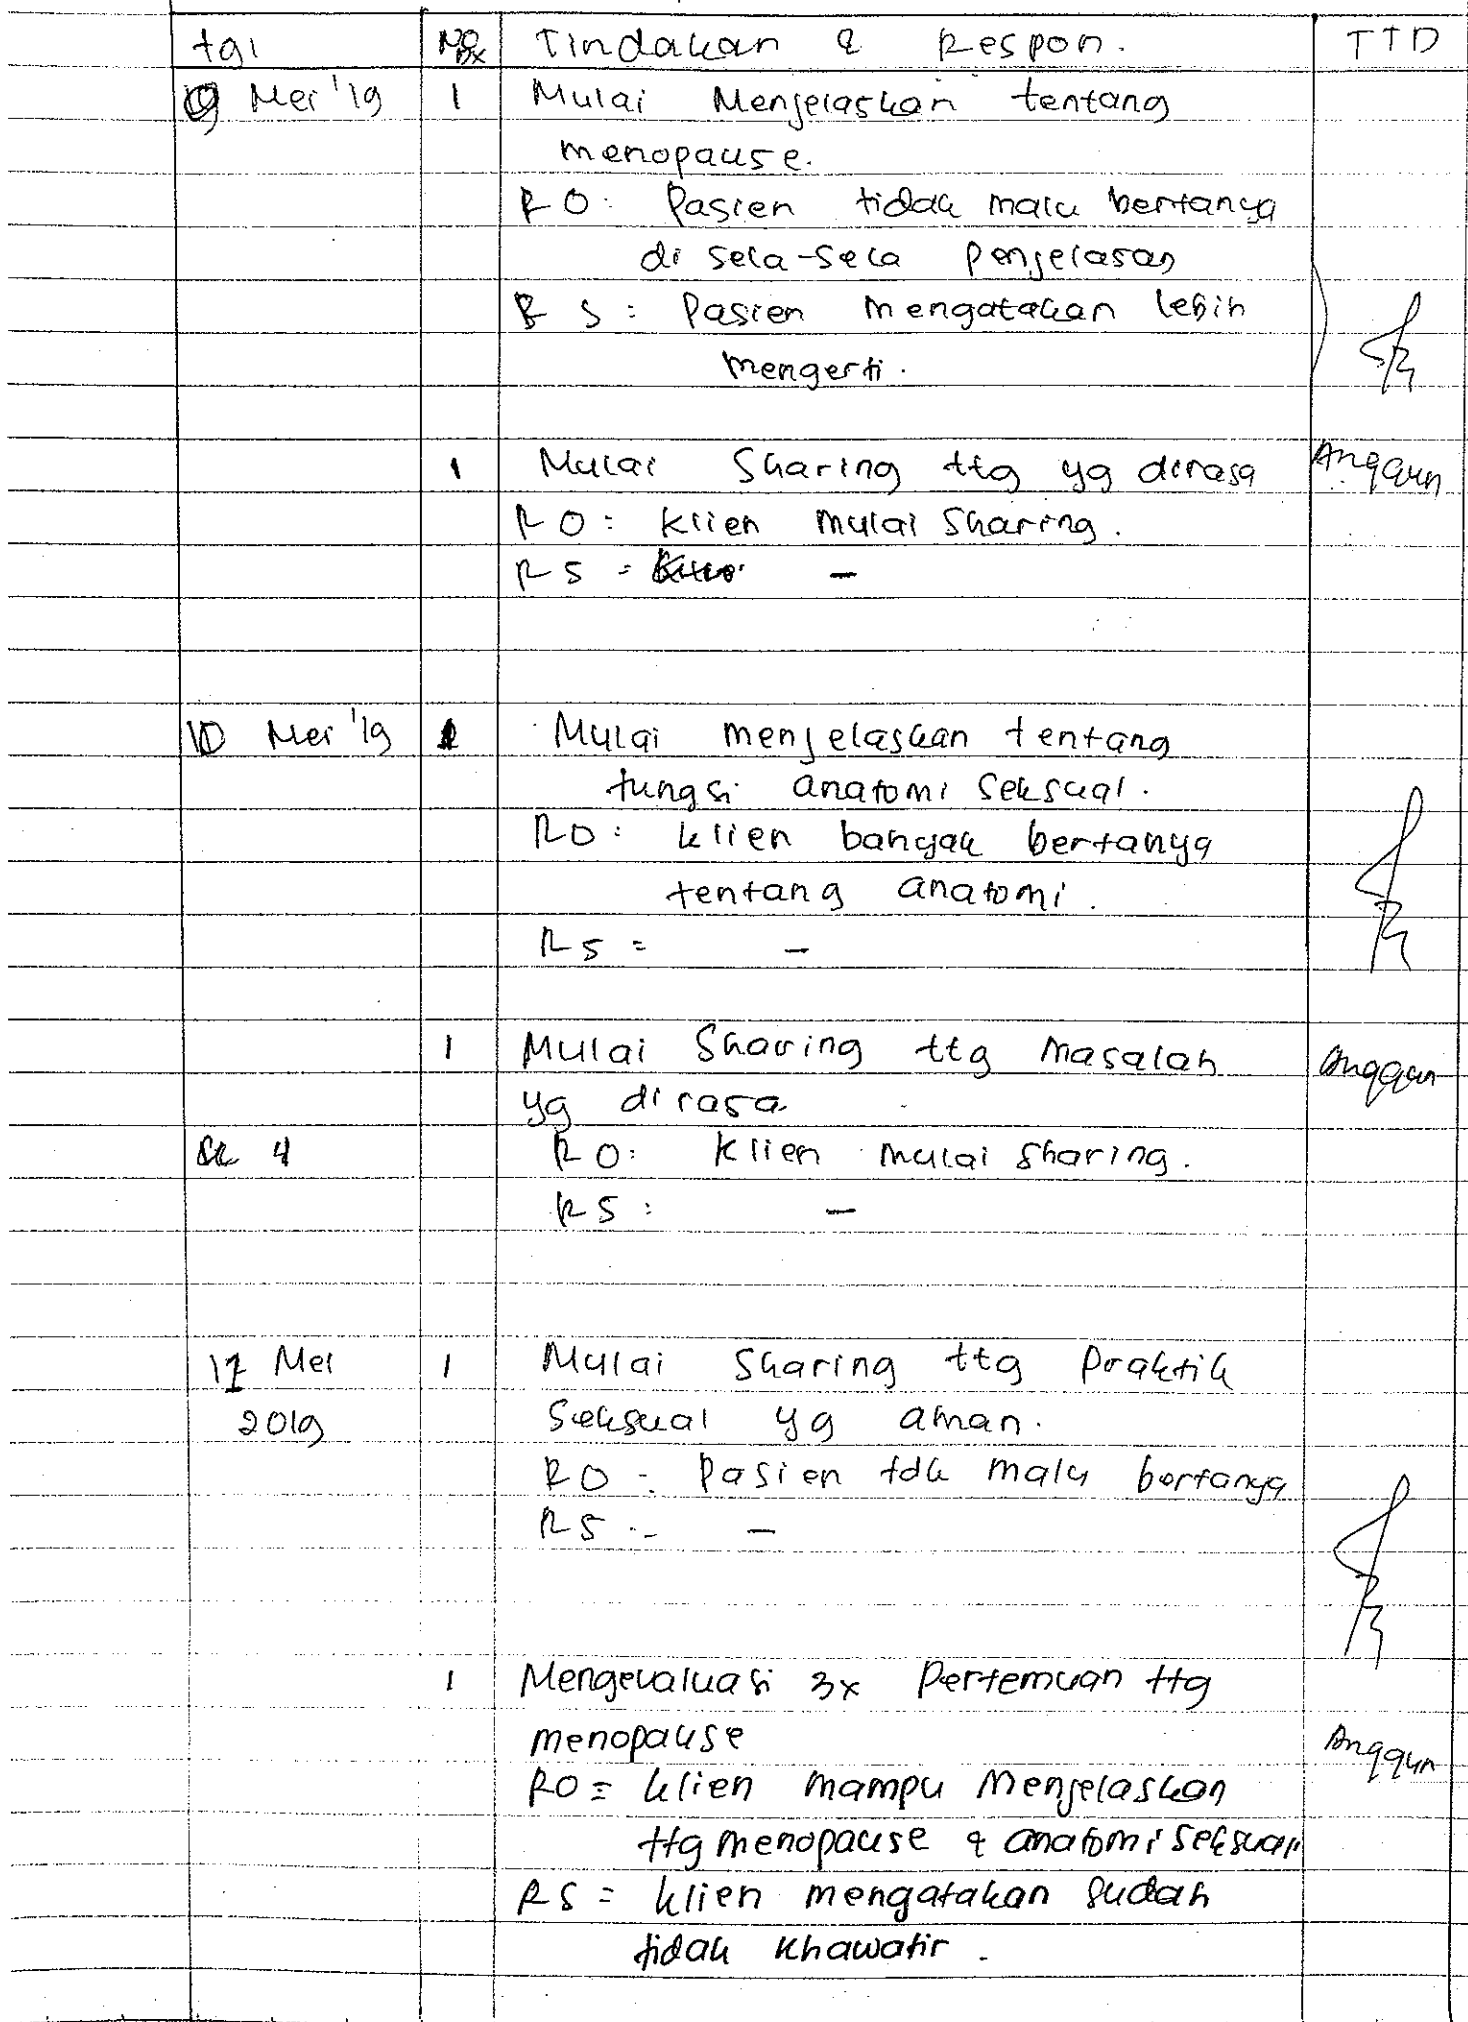 tgl No Dx Tindakan & Respon. TTD
9 Mei '19 1 Mulai Menjelaskan tentang
menopause.
RO: Pasien tidak malu bertanya
di sela-sela penjelasan
RS: Pasien mengatakan lebih
mengerti.
1 Mulai Sharing ttg yg dirasa Anggun
RO: Klien mulai sharing.
RS = -
10 Mei '19 1 Mulai menjelaskan tentang
fungsi anatomi seksual.
RO: klien banyak bertanya
tentang anatomi.
RS = -
1 Mulai Sharing ttg masalah Anggun
yg dirasa
4 RO: Klien mulai sharing.
RS: -
Mei 1 Mulai Sharing ttg Praktik
2019 Seksual yg aman.
RO: Pasien tdk malu bertanya
RS: -
1 Mengevaluasi 3x Pertemuan ttg
menopause Anggun
RO = klien mampu Menjelaskan
ttg menopause & anatomi seksual
RS = klien mengatakan sudah
tidak khawatir.